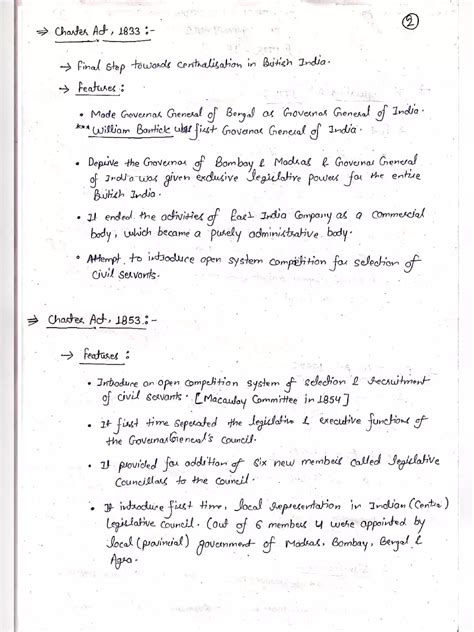 ②
⇒ Charter Act, 1833 :-
→ Final Step towards centralisation in British India.
→ Features :
• Made Governor General of Bengal as Governor General of India.
*** William Bantick was first Governor General of India.
• Deprive the Governor of Bombay & Madras & Governor General
of India was given exclusive legislative powers for the entire
British India.
• It ended the activities of East India Company as a commercial
body, which became a purely administrative body.
• Attempt to introduce open system competition for selection of
civil servants.
⇒ Charter Act, 1853 :-
→ Features :
• Introduce an open competition system of selection & recruitment
of civil servants. [Macaulay Committee in 1854]
• It first time seperated the legislative & executive functions of
the Governor General's Council.
• It provided for addition of six new members called legislative
Councillors to the council.
• It introduce first time, local representation in Indian (Centre)
Legislative Council. (out of 6 members 4 were appointed by
local (provincial) government of Madras, Bombay, Bengal &
Agra.